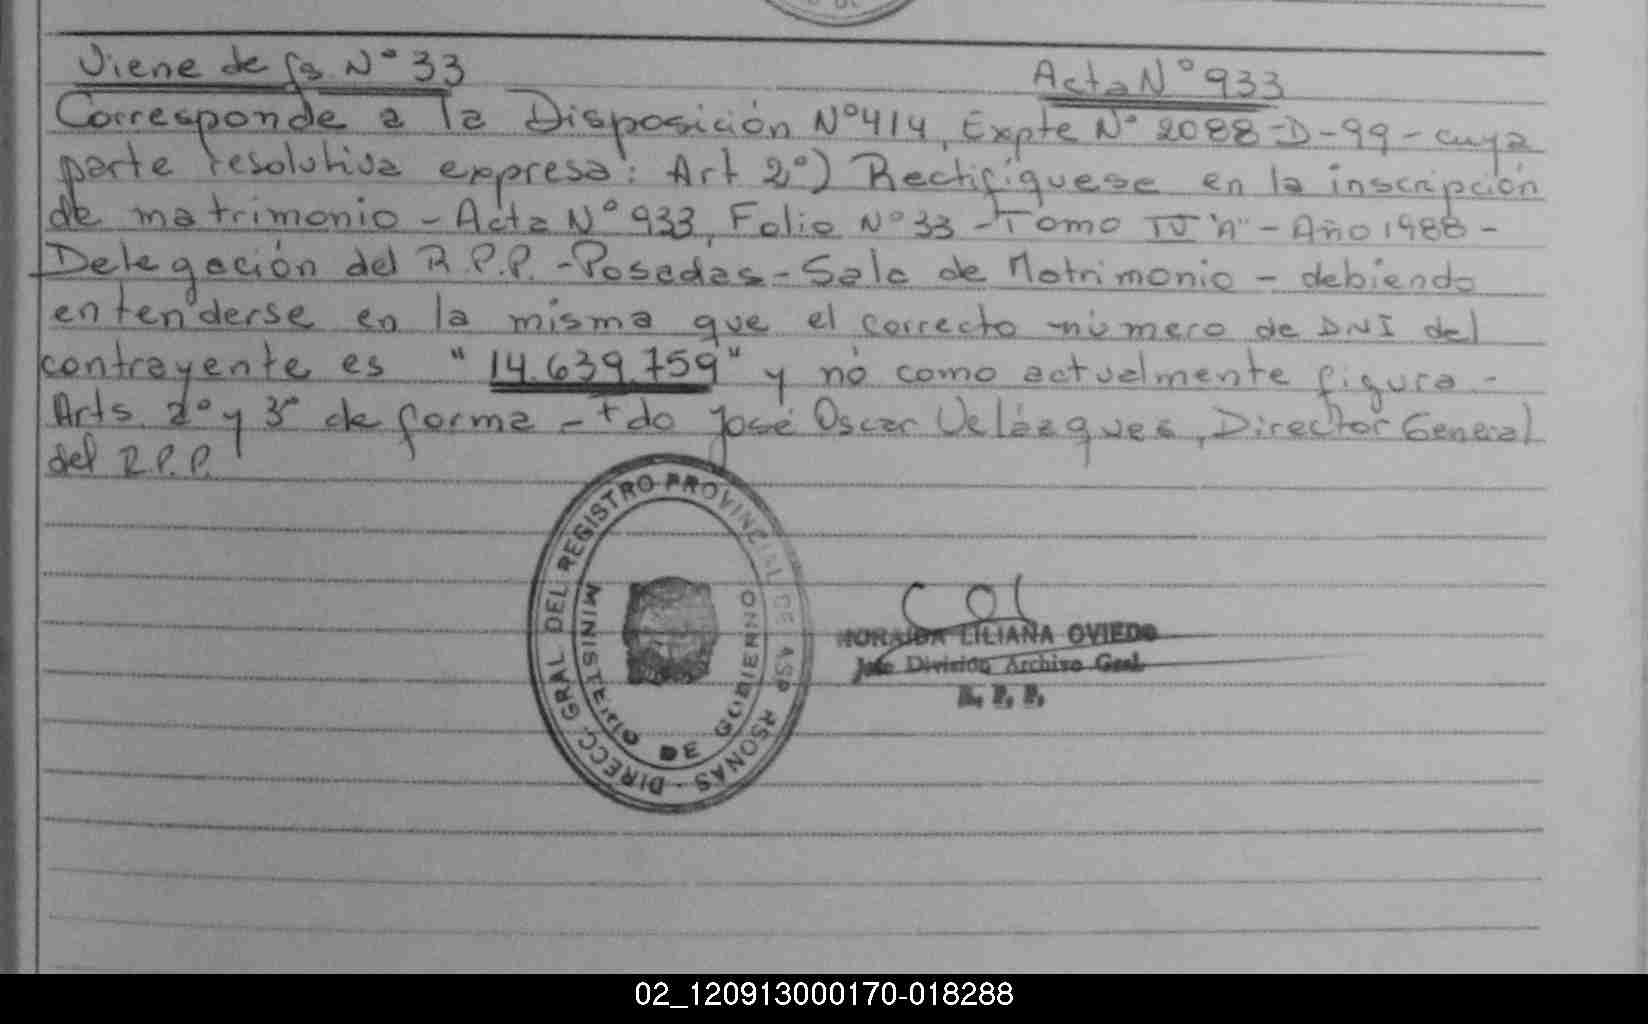 Viene de fs. N° 33
Acta N° 933
Corresponde a la Disposición N° 414, Expte N° 2088-D-99- cuya
parte resolutiva expresa: Art 2°) Rectifíquese en la inscripción
de matrimonio - Acta N° 933, Folio N° 33 - Tomo IV "A" - Año 1988 -
Delegación del R.P.P. - Posadas - Sala de Matrimonio - debiendo
entenderse en la misma que el correcto número de DNI del
contrayente es "14.639.759" y no como actualmente figura -
Arts. 2° y 3° de forma - Fdo José Oscar Velázques, Director General
del R.P.P.
DIRECC. GRAL DEL REGISTRO PROVINCIAL DE
MINISTERIO DE GOBIERNO
LILIANA OVIEDO
Jefe División Archivo Gral.
R. P. P.
02_120913000170-018288